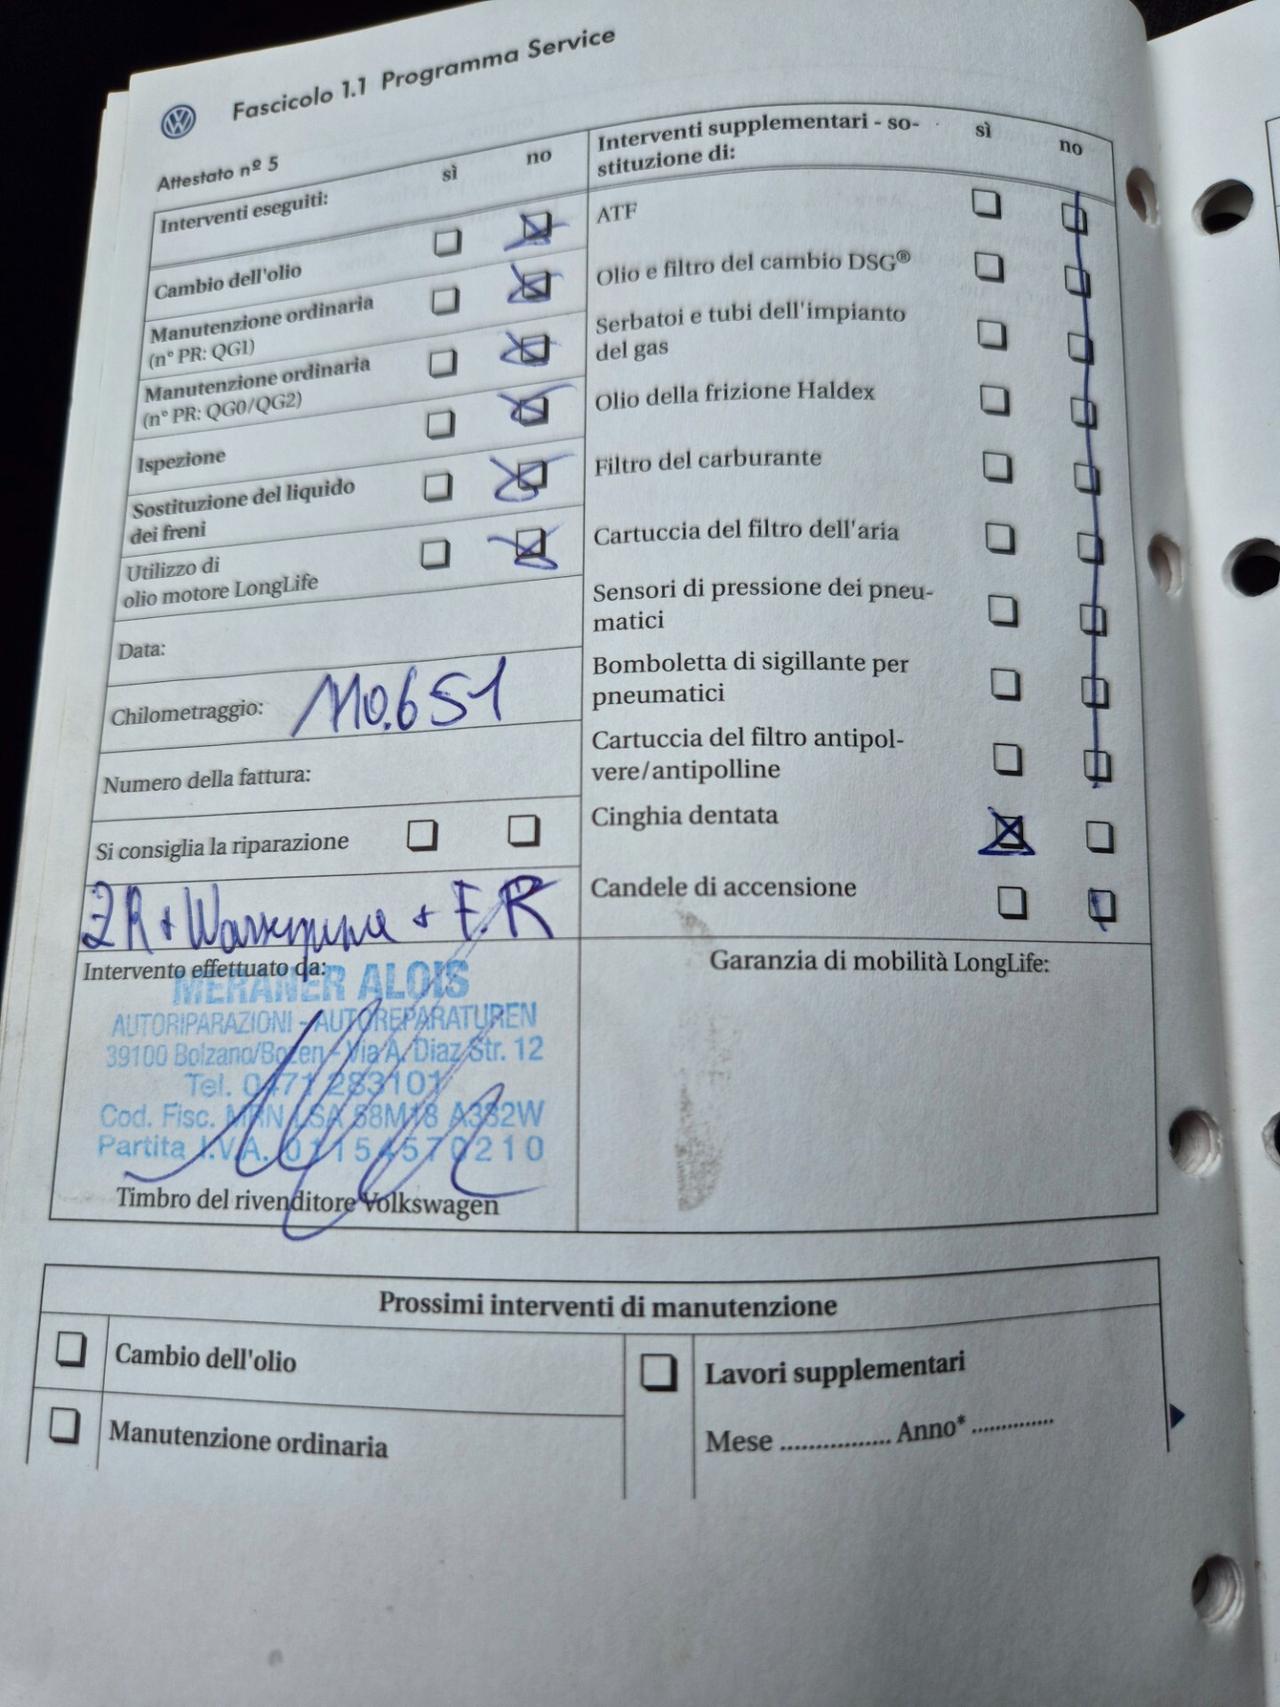 Fascicolo 1.1 Programma Service
Attestato nº 5
Interventi eseguiti:
sì
no
Cambio dell'olio
Manutenzione ordinaria
(n° PR: QG1)
Manutenzione ordinaria
(n° PR: QG0/QG2)
Ispezione
Sostituzione del liquido
dei freni
Utilizzo di
olio motore LongLife
Data:
Chilometraggio: 110.651
Numero della fattura:
Si consiglia la riparazione
ZR + Wasserpumpe + F.R
Intervento effettuato da:
MERANER ALOIS
AUTORIPARAZIONI - AUTOREPARATUREN
39100 Bolzano/Bozen - Via A. Diaz Str. 12
Tel. 0471 283101
Cod. Fisc. MRN LSA 58M18 A332W
Partita I.V.A. 01154570210
Timbro del rivenditore Volkswagen
Interventi supplementari - so-
stituzione di:
sì
no
ATF
Olio e filtro del cambio DSG®
Serbatoi e tubi dell'impianto
del gas
Olio della frizione Haldex
Filtro del carburante
Cartuccia del filtro dell'aria
Sensori di pressione dei pneu-
matici
Bomboletta di sigillante per
pneumatici
Cartuccia del filtro antipol-
vere/antipolline
Cinghia dentata
Candele di accensione
Garanzia di mobilità LongLife:
Prossimi interventi di manutenzione
Cambio dell'olio
Manutenzione ordinaria
Lavori supplementari
Mese ................. Anno* .............